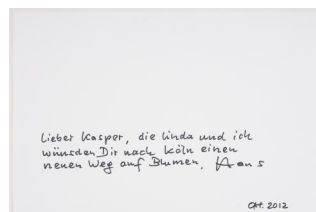 Lieber Kasper, die Linda und ich
wünschen Dir nach Köln einen
neuen Weg auf Blumen. Hans
Okt. 2012